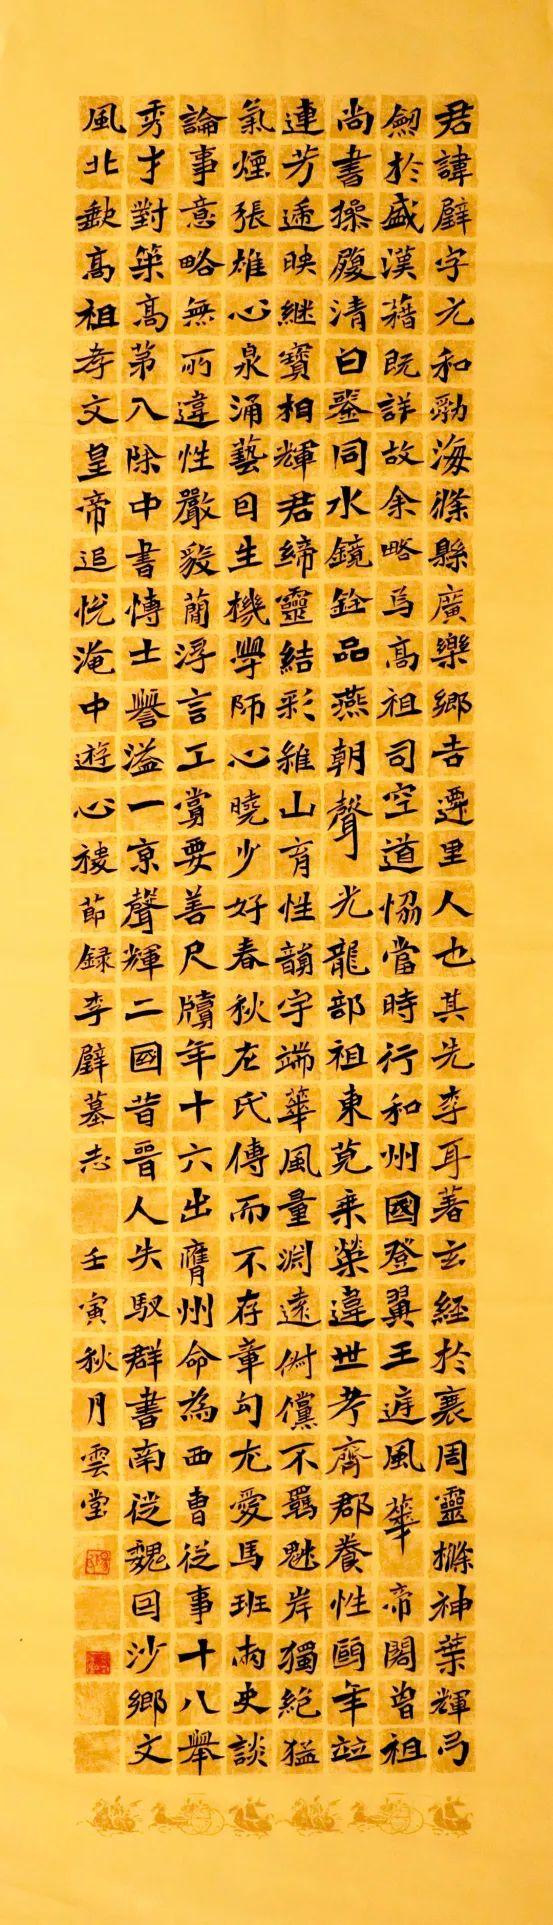 君諱璧字元和勃海條縣廣樂鄉吉遷里人也其先李耳著玄經於衰周靈樤神葉輝弓
劒於盛漢籍既詳故余略焉高祖司空道協當時行和州國登翼王庭風華帝閣曾祖
尚書操履清白鑒同水鏡銓品燕朝聲光龍部祖東莞乘榮違世考齊郡養性頤年竝
連芳遞映繼寶相輝君締靈結彩維山育性韻宇端華風量淵遠倜儻不羈魁岸獨絶猛
氣煙張雄心泉涌藝日生機學師心曉少好春秋左氏傳而不存章句尤愛馬班兩史談
論事意略無所違性嚴毅蕳浮言工賞要善尺牘年十六出膺州命為西曹從事十八舉
秀才對策高第入除中書博士譽溢一京聲輝二國昔晉人失馭群書南從魏因沙鄉文
風北缺高祖孝文皇帝追悅淹中遊心稷節録李璧墓志 壬寅秋月雲堂